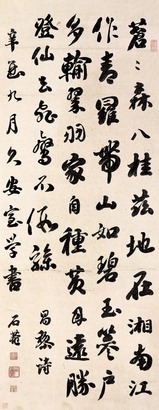 蒼〻森八桂茲地在湘南江
作青羅帶山如碧玉篸戶
多輸翠羽家自種黃甘遠勝
登仙去飛鸞不假驂
昌黎詩
辛亥九月久安室學書
石菴